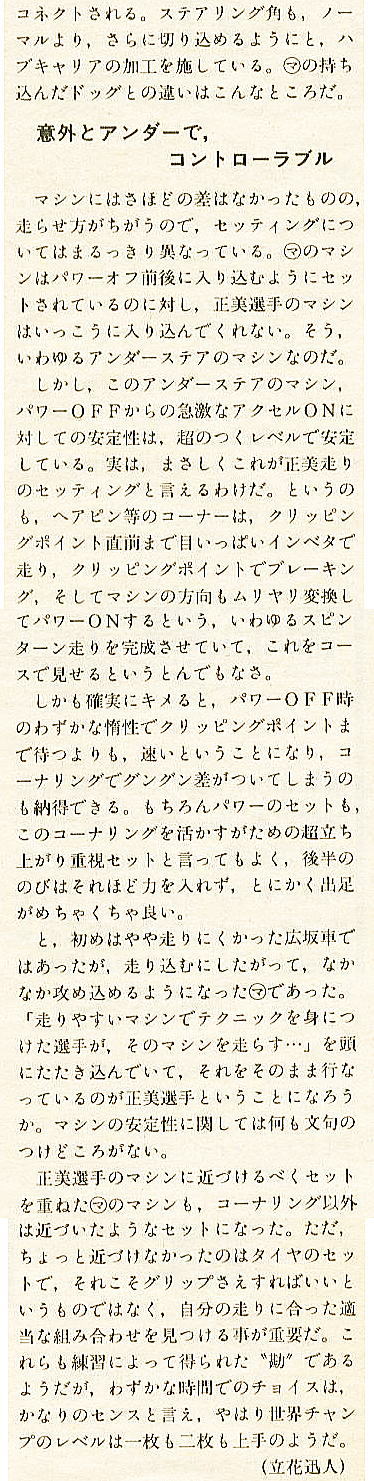 コネクトされる。ステアリング角も，ノー
マルより，さらに切り込めるようにと，ハ
ブキャリアの加工を施している。㋮の持ち
込んだドッグとの違いはこんなところだ。
意外とアンダーで，
コントローラブル
マシンにはさほどの差はなかったものの，
走らせ方がちがうので，セッティングにつ
いてはまるっきり異なっている。㋮のマシ
ンはパワーオフ前後に入り込むようにセッ
トされているのに対し，正美選手のマシン
はいっこうに入り込んでくれない。そう，
いわゆるアンダーステアのマシンなのだ。
しかし，このアンダーステアのマシン，
パワーＯＦＦからの急激なアクセルＯＮに
対しての安定性は，超のつくレベルで安定
している。実は，まさしくこれが正美走り
のセッティングと言えるわけだ。というの
も，ヘアピン等のコーナーは，クリッピン
グポイント直前まで目いっぱいインベタで
走り，クリッピングポイントでブレーキン
グ，そしてマシンの方向もムリヤリ変換し
てパワーＯＮするという，いわゆるスピン
ターン走りを完成させていて，これをコー
スで見せるというとんでもなさ。
しかも確実にキメると，パワーＯＦＦ時
のわずかな惰性でクリッピングポイントま
で待つよりも，速いということになり，コ
ーナリングでグングン差がついてしまうの
も納得できる。もちろんパワーのセットも，
このコーナリングを活かすがための超立ち
上がり重視セットと言ってもよく，後半の
のびはそれほど力を入れず，とにかく出足
がめちゃくちゃ良い。
と，初めはやや走りにくかった広坂車で
はあったが，走り込むにしたがって，なか
なか攻め込めるようになった㋮であった。
「走りやすいマシンでテクニックを身につ
けた選手が，そのマシンを走らす…」を頭
にたたき込んでいて，それをそのまま行な
っているのが正美選手ということになろう
か。マシンの安定性に関しては何も文句の
つけどころがない。
正美選手のマシンに近づけるべくセット
を重ねた㋮のマシンも，コーナリング以外
は近づいたようなセットになった。ただ，
ちょっと近づけなかったのはタイヤのセッ
トで，それこそグリップさえすればいいと
いうものではなく，自分の走りに合った適
当な組み合わせを見つける事が重要だ。こ
れらも練習によって得られた〝勘〟である
ようだが，わずかな時間でのチョイスは，
かなりのセンスと言え，やはり世界チャン
プのレベルは一枚も二枚も上手のようだ。
(立花迅人)